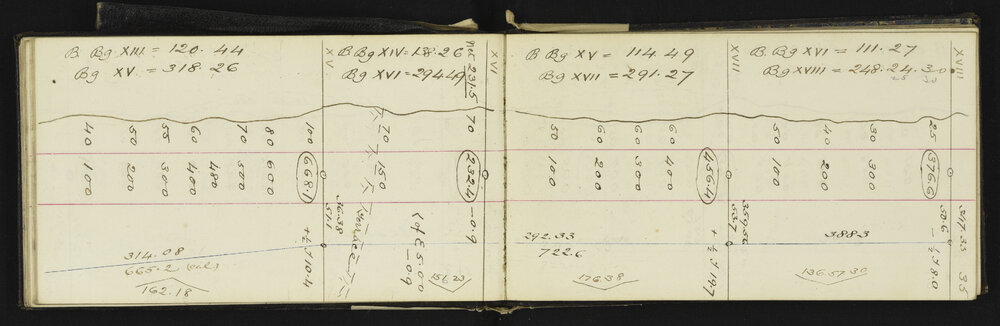 B Bg XIII = 120. 44
Bg XV = 318. 26
XV
40
50
55
60
70
80
100
100
200
300
400
480
500
600
668.1
314.08
665.2 (cal)
162.18
B Bg XIV = 138.26
Bg XVI = 294.49
XVI
70
70
150
232.4
-0.9
Terrace
-09
151.23
B Bg XV = 114.49
Bg XVII = 291.27
XVII
50
60
60
60
100
200
300
400
456.4
292.33
722.6
176.38
B. Bg XVI = 111.27
Bg XVIII = 248.24.30
XVIII
50
40
30
25
100
200
300
376.6
3883
136.57.30